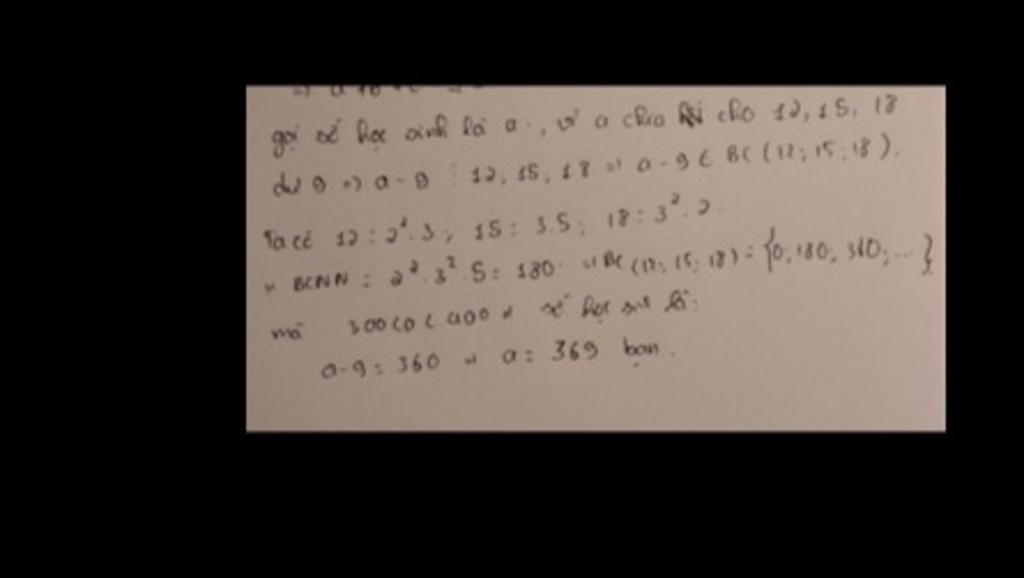 gọi số học sinh là a., vì a chia cho 12, 15, 18
dư 9 => a - 9 ⋮ 12, 15, 18 => a - 9 ∈ BC (12; 15; 18).
Ta có 12 = 2². 3; 15 = 3.5; 18 = 3². 2.
=> BCNN = 2². 3². 5 = 180 => BC (12; 15; 18) = {0; 180; 360; ... }
mà 300 < a < 400 => số học sinh là:
a - 9 = 360 => a = 369 bạn.